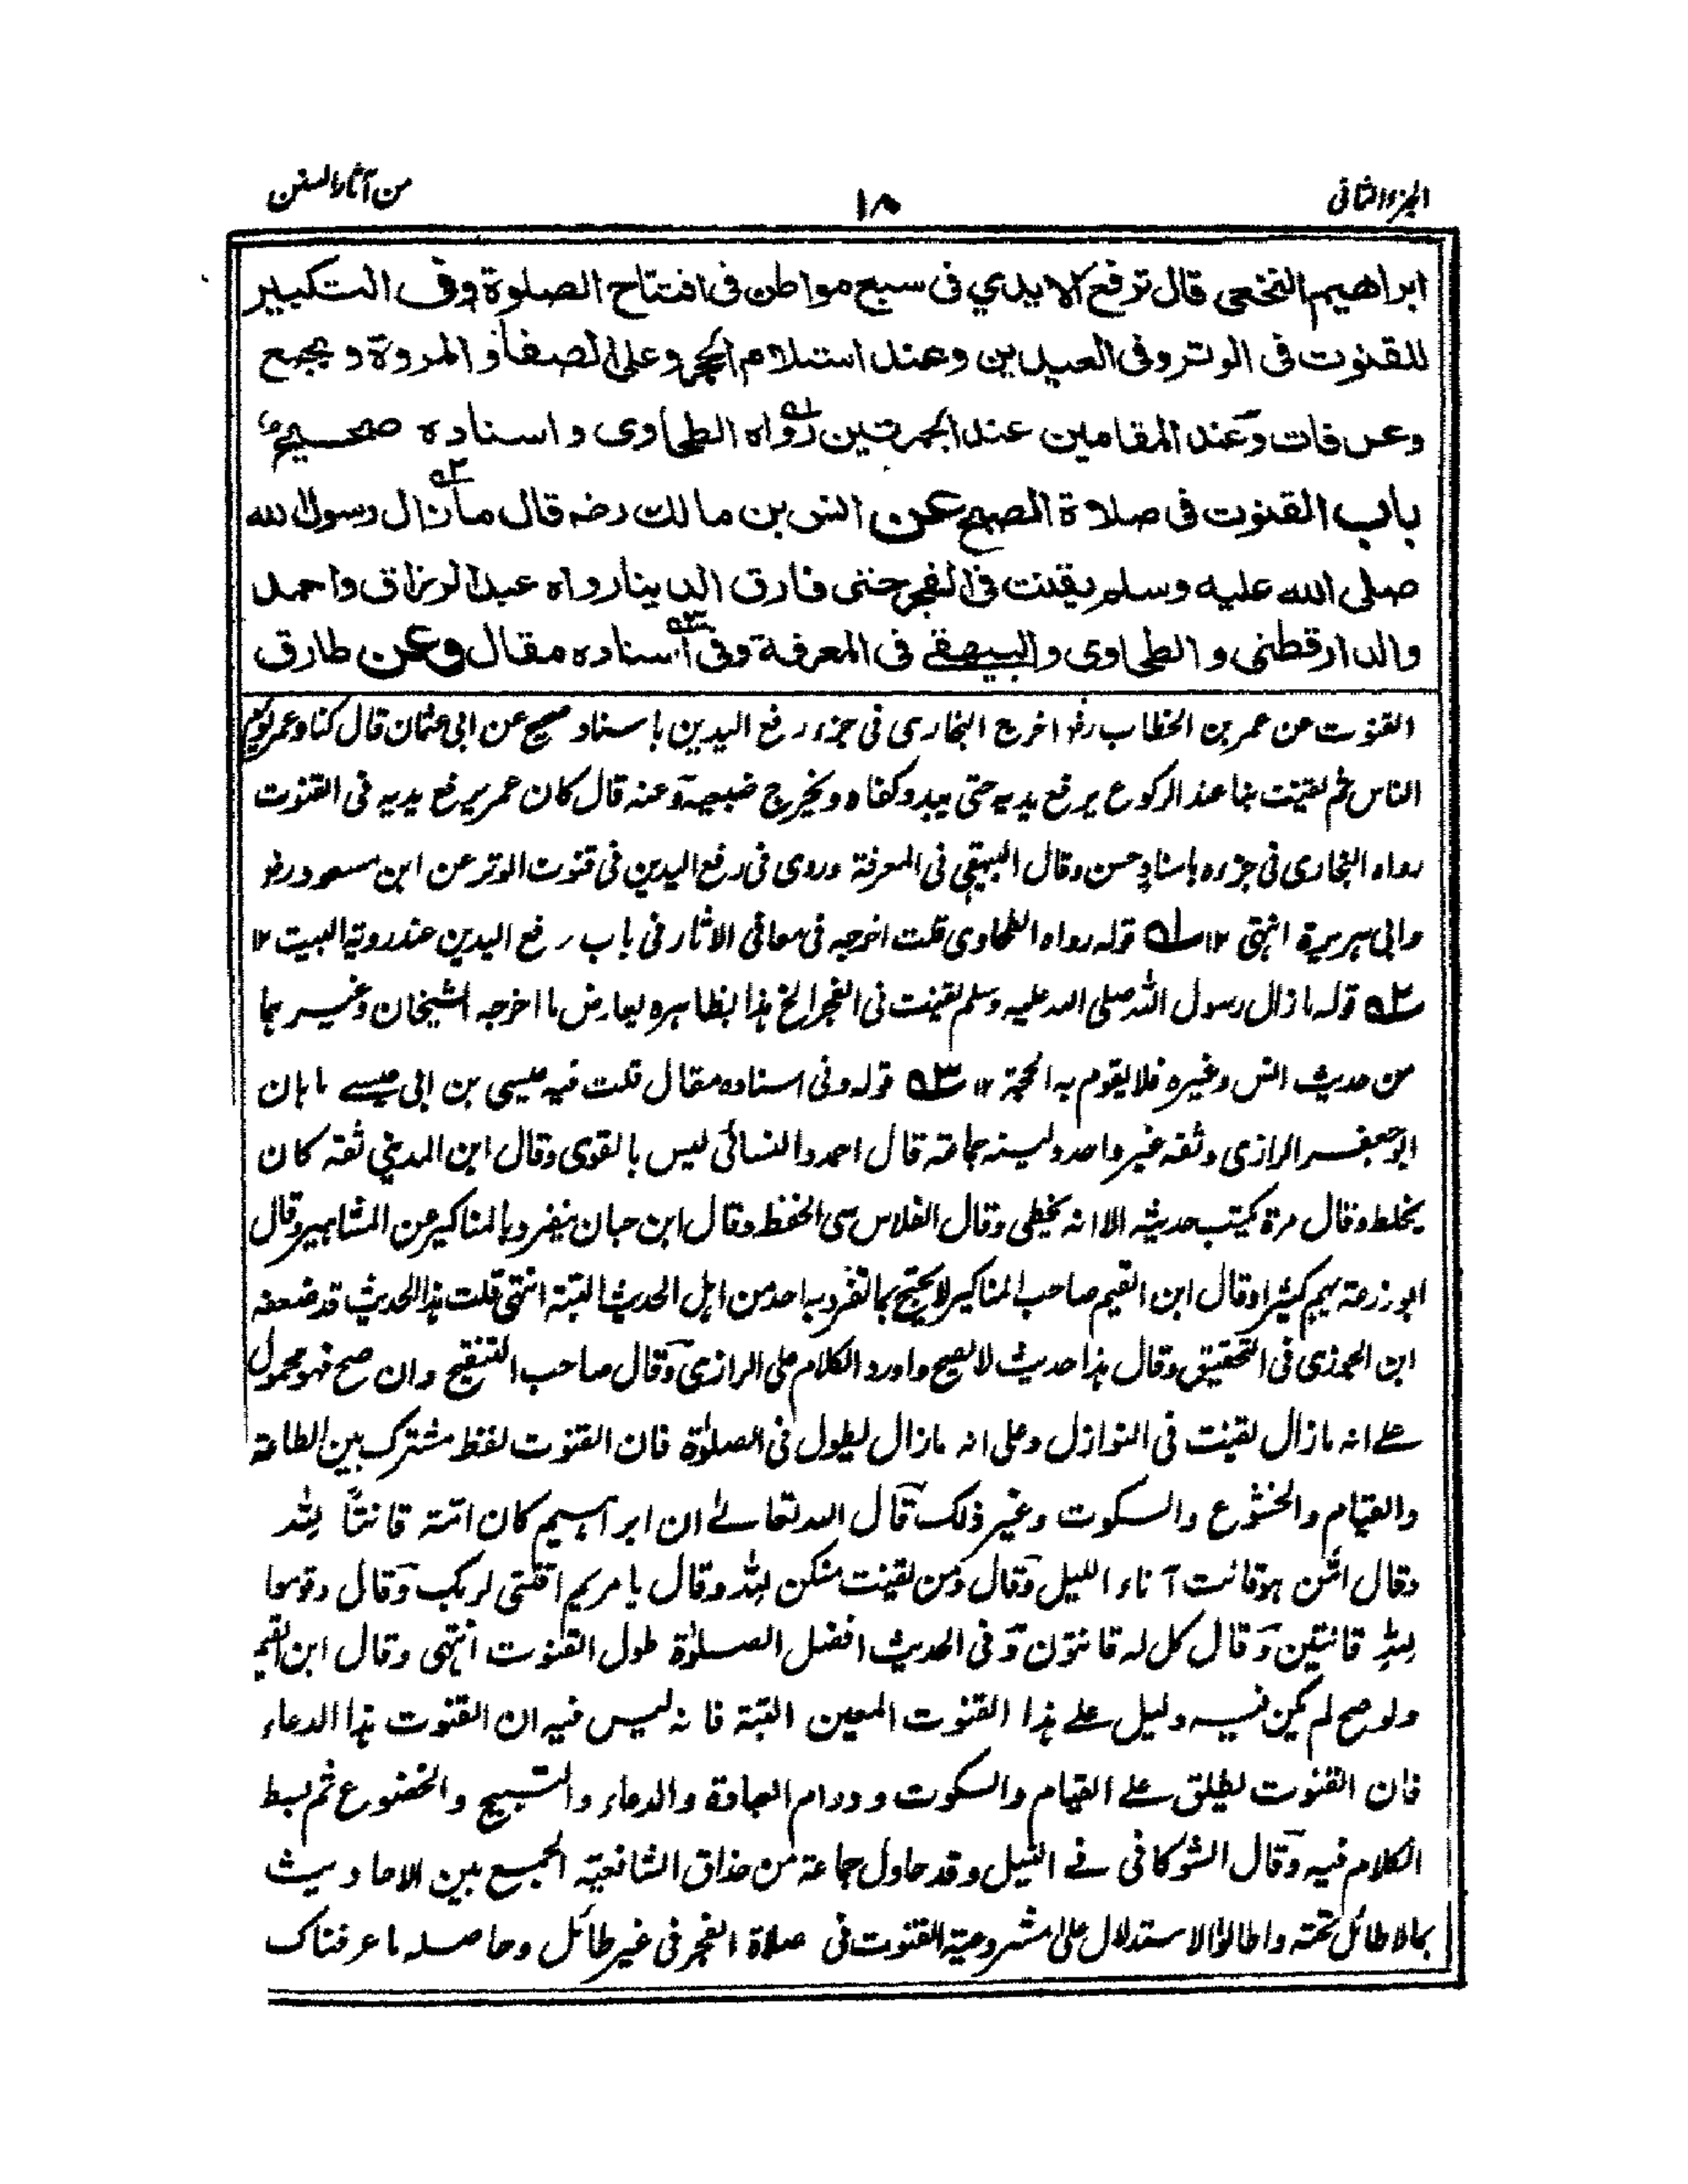 الجزء الثانی
١٨
من آثار السنن
ابراهیم النخعی قال ترفع الایدي فی سبع مواطن فی افتتاح الصلوة وفی التکبیر
للقنوت فی الوتر وفی العیدین وعند استلام الحجر وعلی الصفا والمروة وبجمع
وعرفات وعند المقامین عند الجمرتین رواه الطحاوی واسناده صحیح
باب القنوت فی صلاة الصبح عن انس بن مالك رضہ قال ما زال رسول الله
صلی الله علیه وسلم یقنت فی الفجر حتی فارق الدنیا رواه عبد الرزاق واحمد
والدارقطنی والطحاوی والبیهقے فی المعرفة وفی اسناده مقال وعن طارق
القنوت عن عمر بن الخطاب رضہ اخرج البخاری فی جزء رفع الیدین باسناد صحیح عن ابی عثمان قال کنا وعمر یؤم
الناس ثم یقنت بنا عند الرکوع یرفع یدیہ حتی یبدو کفاہ ویخرج ضبعیہ وعنہ قال کان عمر یرفع یدیہ فی القنوت
رواہ البخاری فی جزءہ باسناد حسن وقال البیہقی فی المعرفة وروی فی رفع الیدین فی قنوت الوتر عن ابن مسعود رضہ
وابی ہریرة انتہی ١٢ ۱ قولہ رواہ الطحاوی قلت اخرجہ فی معانی الاثار فی باب رفع الیدین عند رویة البیت ١٢
۲ قولہ ما زال رسول اللہ صلی اللہ علیہ وسلم یقنت فی الفجر الخ ہذا بظاہرہ یعارض ما اخرجہ الشیخان وغیرہما
من حدیث انس وغیرہ فلا یقوم بہ الحجة ١٢ ۳ قولہ وفی اسنادہ مقال قلت فیہ عیسی بن ابی عیسے ماہان
ابو جعفر الرازی وثقہ غیر واحد ولینہ جماعة قال احمد والنسائی لیس بالقوی وقال ابن المدینی ثقہ کان
یخلط وقال مرة یکتب حدیثہ الا انہ یخطی وقال الفلاس سی الحفظ وقال ابن حبان ینفرد بالمناکیر عن المشاہیر وقال
ابو زرعة یہم کثیرا وقال ابن القیم صاحب المناکیر لا یحتج بما تفرد بہ احد من اہل الحدیث البتة انتہی قلت ہذا الحدیث قد ضعفہ
ابن الجوزی فی التحقیق وقال ہذا حدیث لا یصح واورد الکلام علی الرازی وقال صاحب التنقیح وان صح فہو محمول
علے انہ ما زال یقنت فی النوازل وعلی انہ ما زال یطول فی الصلوٰة فان القنوت لفظ مشترک بین الطاعة
والقیام والخشوع والسکوت وغیر ذلک قال اللہ تعالےٰ ان ابراہیم کان امة قانتاً للہ
وقال امن ہو قانت آناء اللیل وقال ومن یقنت منکن للہ وقال یا مریم اقنتی لربک وقال وقوموا
للہ قانتین وقال کل لہ قانتون وفی الحدیث افضل الصلوٰة طول القنوت انتہی وقال ابن القیم
ولو صح لم یکن فیہ دلیل علے ہذا القنوت المعین البتة فانہ لیس فیہ ان القنوت ہذا الدعاء
فان القنوت یطلق علے القیام والسکوت ودوام العبادة والدعاء والتسبیح والخضوع ثم بسط
الکلام فیہ وقال الشوکانی فے النیل وقد حاول جماعة من حذاق الشافعیة الجمع بین الاحادیث
بما لا طائل تحتہ واطالوا الاستدلال علیٰ مشروعیة القنوت فی صلاة الفجر فی غیر طائل وحاصلہ ما عرفناک